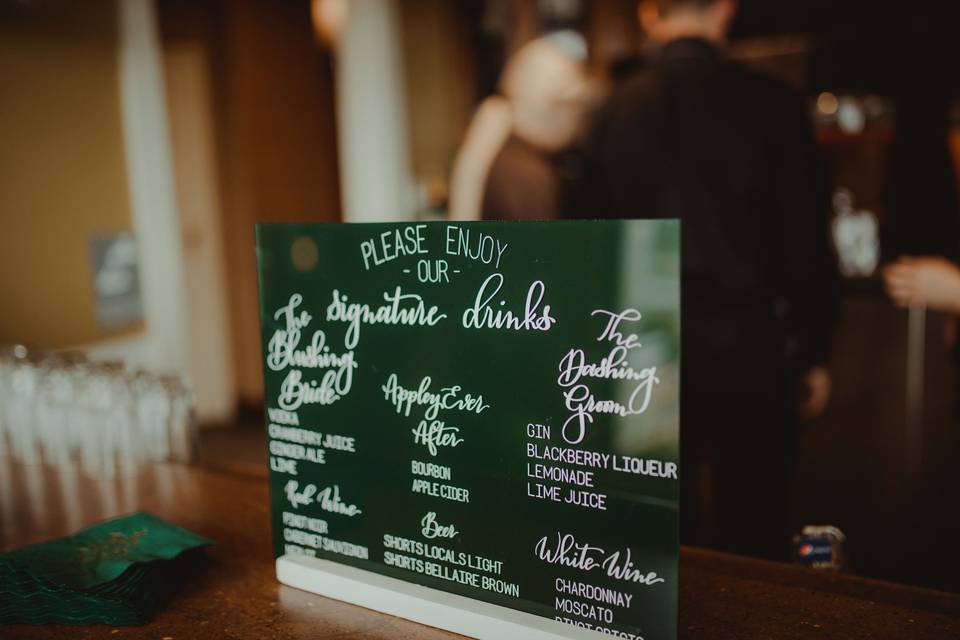 PLEASE ENJOY
- OUR -
Signature drinks
The
Blushing
Bride
VODKA
CRANBERRY JUICE
GINGER ALE
LIME
Appley Ever
After
BOURBON
APPLE CIDER
The
Dashing
Groom
GIN
BLACKBERRY LIQUEUR
LEMONADE
LIME JUICE
Red Wine
PINOT NOIR
CABERNET SAUVIGNON
MERLOT
Beer
SHORTS LOCALS LIGHT
SHORTS BELLAIRE BROWN
White Wine
CHARDONNAY
MOSCATO
PINOT GRIGIO